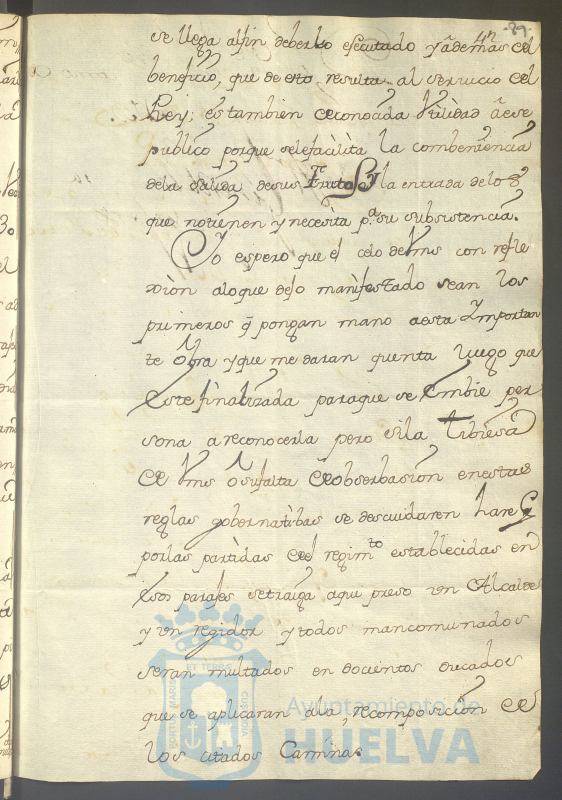 89
47
se llega alfin deberlo efecutado y ademas el
beneficio, que de esto resulta al servicio del
Rey; es tambien de conocida Vtilidad a ese
publico porque selefacilita la combeniencia
dela salida desus Frutos, y la entrada delos
que notienen y necesita p.ª su subsistencia.
Yo espero que el celo de Vms con refle
xion aloque defo manifestado sean los
primeros q̃ pongan mano aesta Ymportan
te obra y que me daran quenta luego que
este finalizada paraque se embie per
sona a reconocerla pero sila tibiesa
de Vms o sufalta de obserbasion enestas
reglas gobernatibas se descuidaren hare q̃
porlas partidas del regim.to establecidas en
esos parajes setraiga aqui preso un Alcalde
y un regidor y todos mancomunados
seran multados en docientos ducados
que se aplicaran ala recomposicion de
los citados Caminos.
PORTUS MARIS
ET TERRE
CUSTODIA
Ayuntamiento de
HUELVA